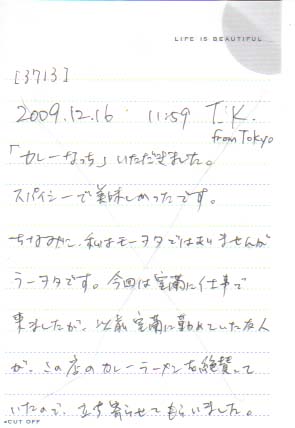 LIFE IS BEAUTIFUL
[3713]
2009.12.16 11:59 T.K.
from Tokyo
「カレーなっち」いただきました。
スパイシーで美味しかったです。
ちなみに、私はモーヲタではありませんが
ラーヲタです。今回は室蘭に仕事で
来ましたが、以前室蘭に勤めていた友人
が、この店のカレーラーメンを絶賛して
いたので、立ち寄らせてもらいました。
CUT OFF